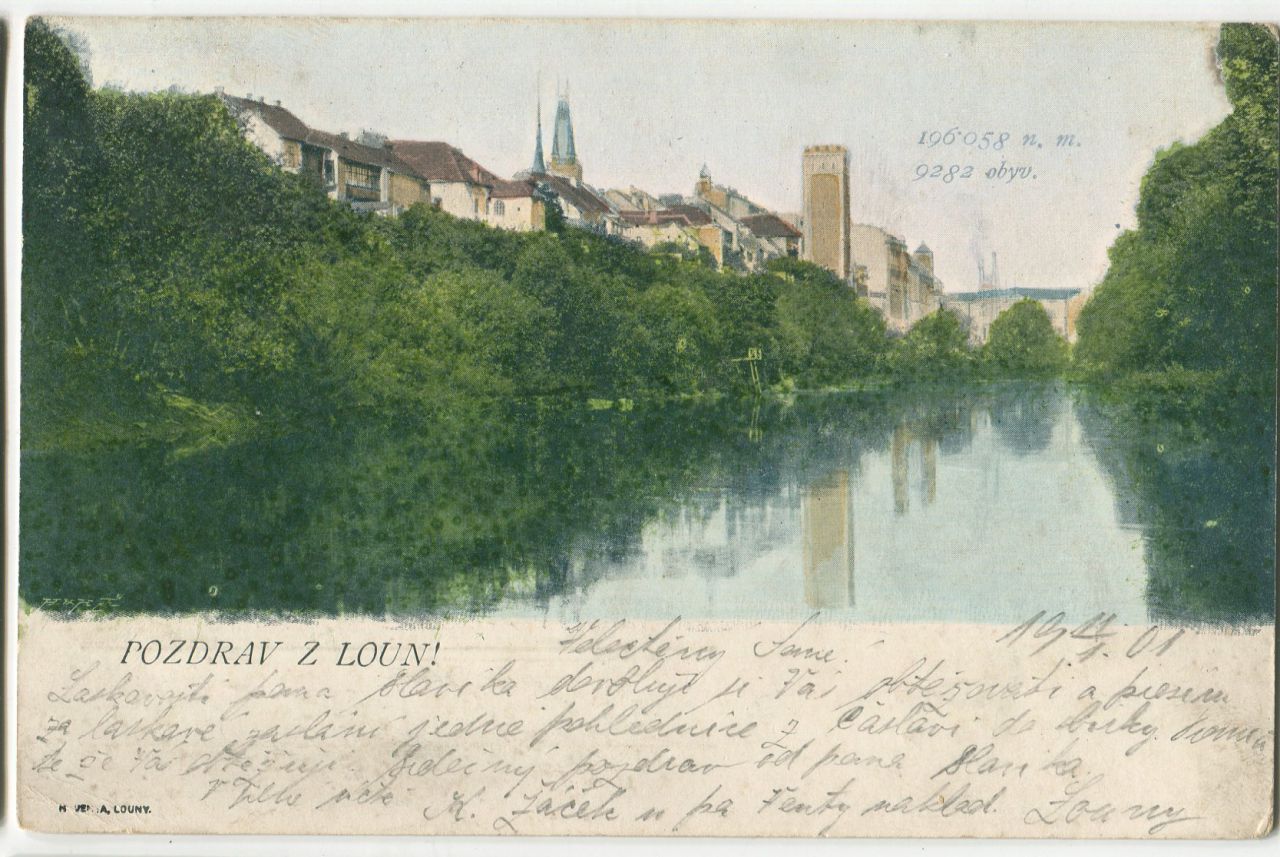 196·058 n. m.
9282 obyv.
POZDRAV Z LOUN!
Velectěný Pane! 19 11/X. 01
Laskavostí pana Slavíka dovoluji si Vás obtěžovati a prosím
za laskavé zaslání jedné pohlednice z Čáslavi do sbírky
že Vás obtěžuji. Srdečný pozdrav od pana Slavíka
K. Žáček u pa Venty naklad. Louny
LOUNY.